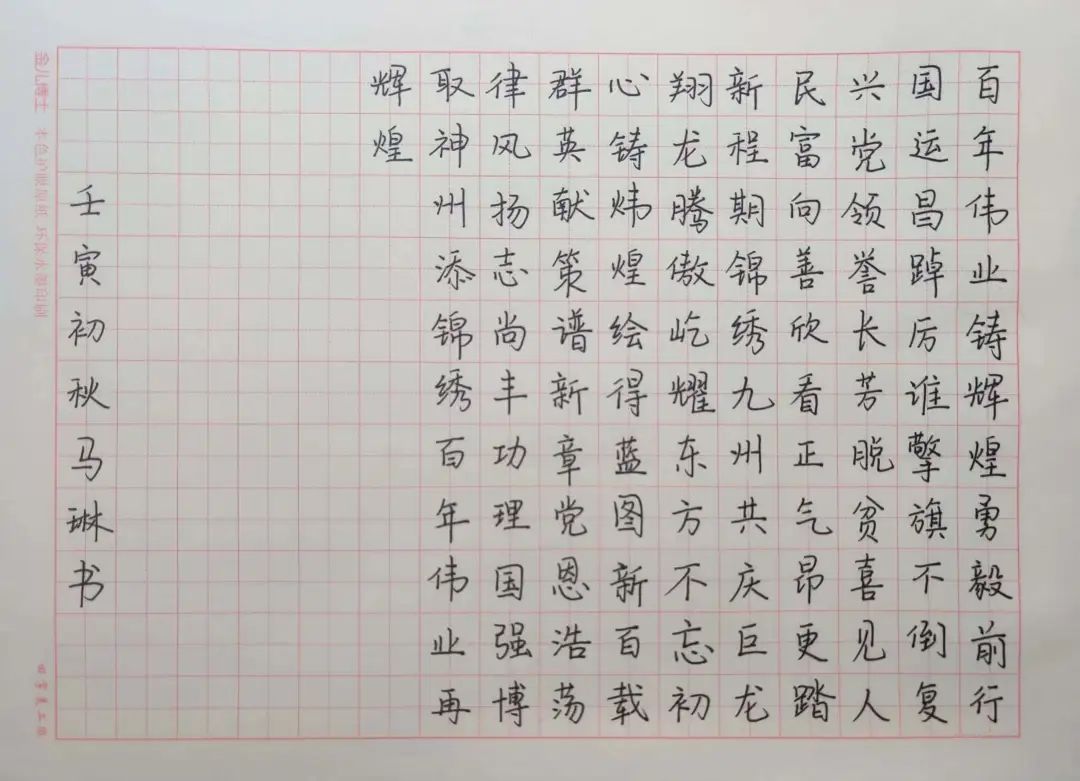 百年伟业铸辉煌勇毅前行
国运昌踔厉谁擎旗不倒复
兴党领誉长芳脱贫喜见人
民富向善欣看正气昂更踏
新程期锦绣九州共庆巨龙
翔龙腾傲屹耀东方不忘初
心铸炜煌绘得蓝图新百载
群英献策谱新章党恩浩荡
律风扬志尚丰功理国强博
取神州添锦绣百年伟业再
辉煌
壬寅初秋马琳书